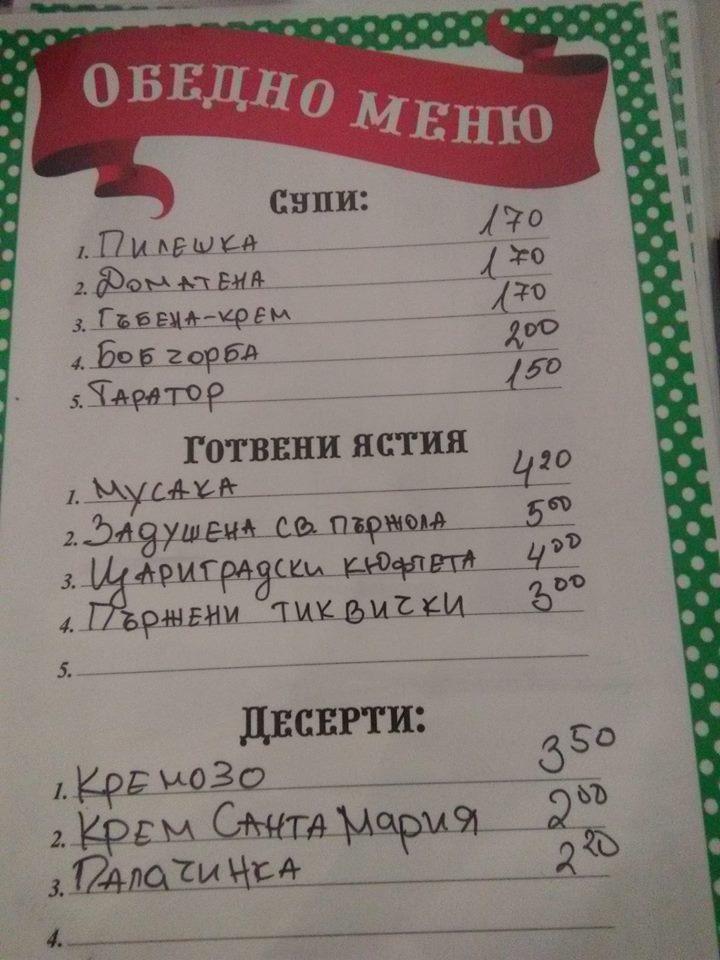 ОБЕДНО МЕНЮ
СУПИ:
1. ПИЛЕШКА 170
2. ДОМАТЕНА 170
3. ГЪБЕНА-КРЕМ 170
4. БОБ ЧОРБА 200
5. ТАРАТОР 150
ГОТВЕНИ ЯСТИЯ
1. МУСАКА 420
2. ЗАДУШЕНА СВ. ПЪРЖОЛА 500
3. ЦАРИГРАДСКИ КЮФТЕТА 400
4. ПЪРЖЕНИ ТИКВИЧКИ 300
5.
ДЕСЕРТИ:
1. КРЕМОЗО 350
2. КРЕМ САНТА МАРИЯ 200
3. ПАЛАЧИНКА 220
4.